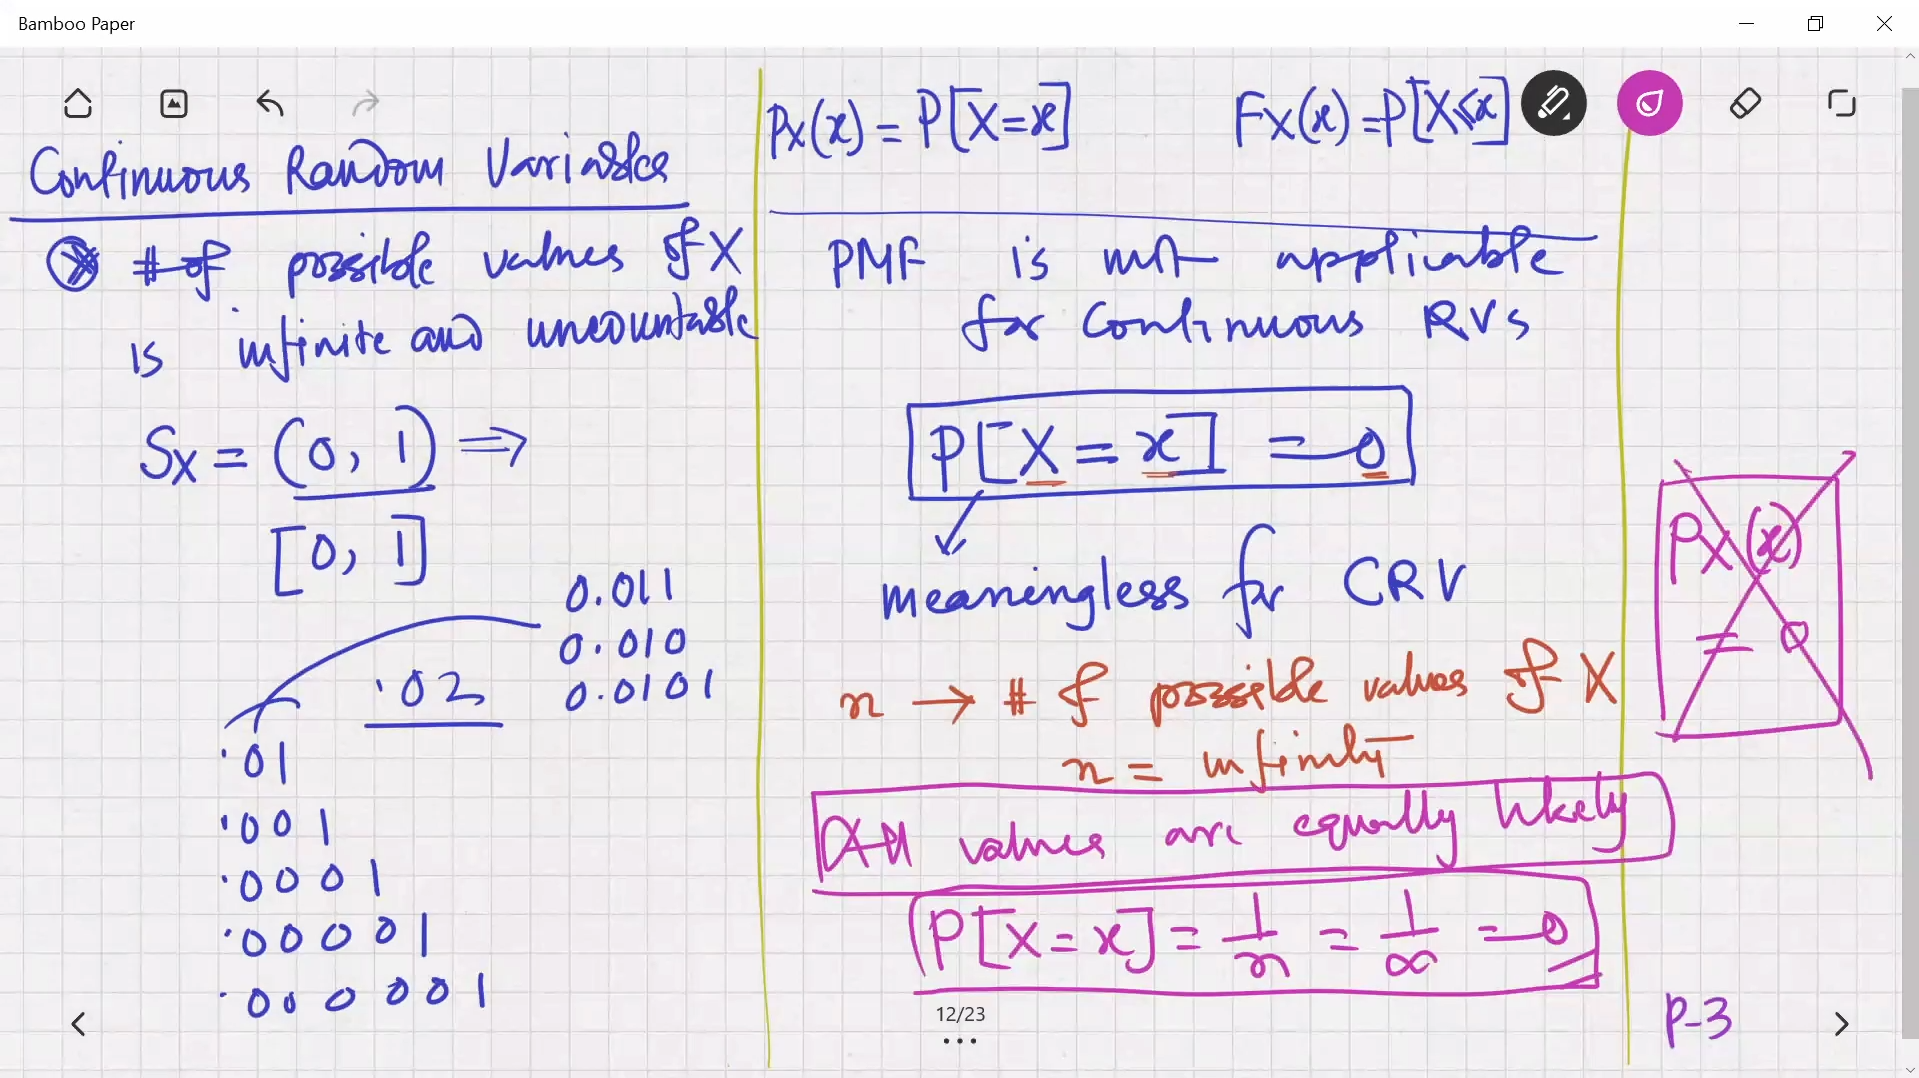 Bamboo Paper
Continuous Random Variables
# of possible values of X
is infinite and uncountable
Sx = (0, 1) ⇒
[0, 1]
0.011
0.010
0.0101
.02
.01
.001
.0001
.00001
.000001
Px(x) = P[X=x]
Fx(x) = P[X≤x]
PMF is not applicable
for Continuous RVs
P[X = x] = 0
meaningless for CRV
n → # of possible values of X
n = infinity
All values are equally likely
P[X=x] = 1/n = 1/∞ = 0
Px(x)
= 0
P-3
12/23